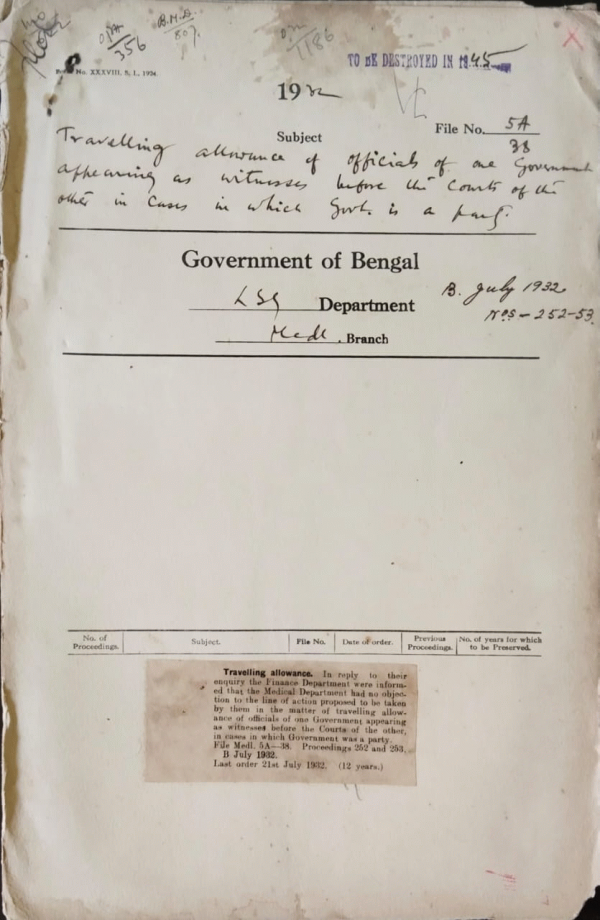 356
B.M.D.
807.
1186
TO BE DESTROYED IN 1945
No. XXXVIII, S. I., 1924.
1932
Subject
File No. 5A
38
Travelling allowance of officials of one Government
appearing as witnesses before the Courts of the
other in Cases in which Govt. is a party.
Government of Bengal
LSG Department
B. July 1932
Nos - 252-53.
Medl. Branch
No. of Proceedings. Subject. File No. Date of order. Previous Proceedings. No. of years for which to be Preserved.
Travelling allowance. In reply to their
enquiry the Finance Department were inform-
ed that the Medical Department had no objec-
tion to the line of action proposed to be taken
by them in the matter of travelling allow-
ance of officials of one Government appearing
as witnesses before the Courts of the other,
in cases in which Government was a party.
File Medl. 5A—38. Proceedings 252 and 253.
B July 1932.
Last order 21st July 1932. (12 years.)